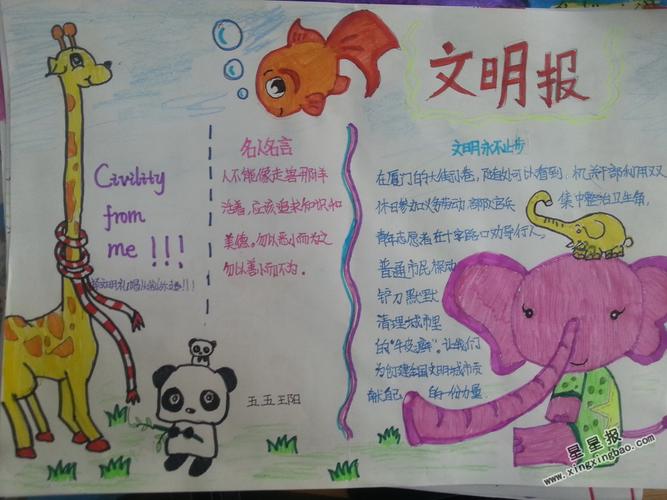 文明报
Civility
from
me !!!
名人名言
人不能像走兽那样
活着，应该追求知识和
美德。勿以恶小而为之
勿以善小而不为。
五五王阳
文明永不止步
在厦门的大街小巷，随处可以看到，机关干部利用双
休日参加义务劳动，部队官兵 集中整治卫生角，
青年志愿者在十字路口劝导行人，
普通市民
铲刀默默
清理城市里
的“牛皮癣”。让我们
为创建全国文明城市贡
献自己 的一份力量
星星报
www.xingxingbao.com